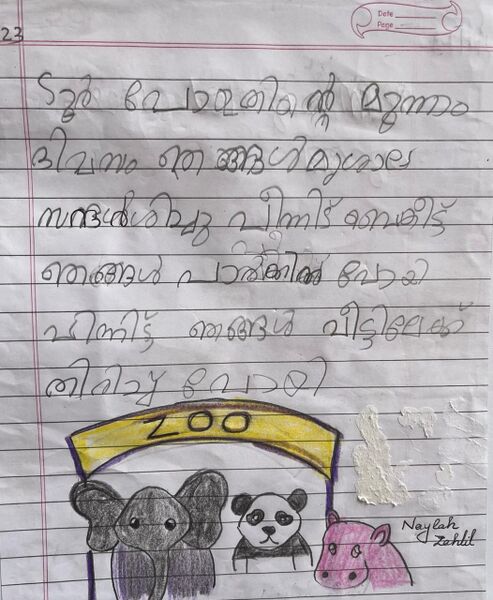 23
Date
Page
ടൂർ പോയതിന്റെ മൂന്നാം
ദിവസം ഞങ്ങൾ മൃശാല
സന്ദർശിച്ചു പിന്നിട് വൈകീട്ട്
ഞങ്ങൾ പാർക്കിൽ പോയി
പിന്നിട്ട് ഞങ്ങൾ വീട്ടിലേക്ക്
തിരിച്ച് പോയി
ZOO
Naylah
Zahlil